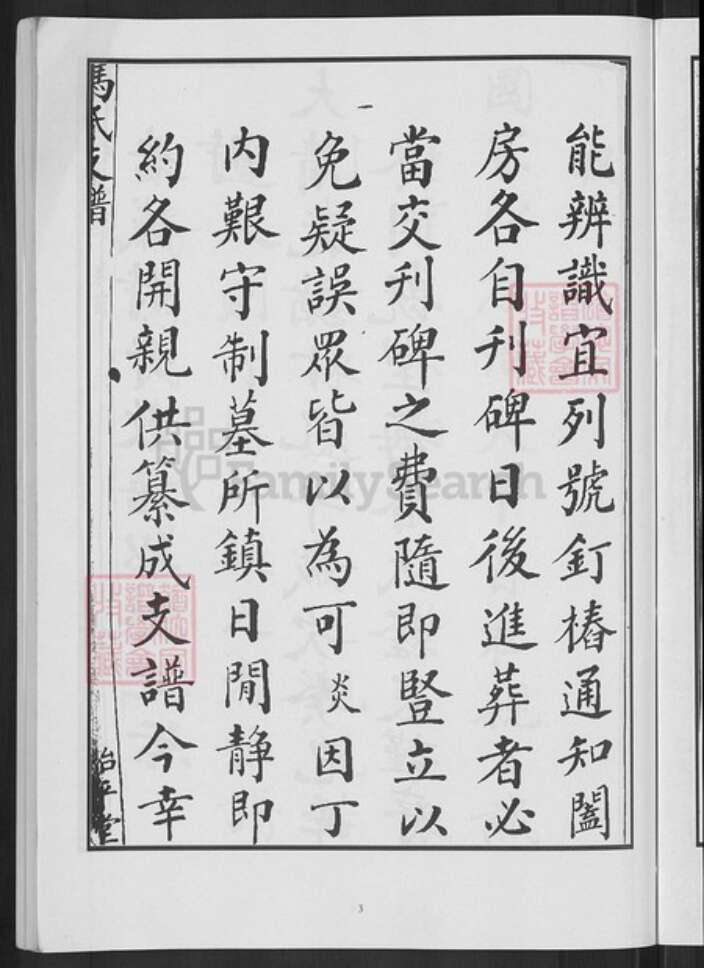 能辨識宜列號釘樁通知闔
房各自刋碑日後進葬者必
當交刋碑之費隨即豎立以
免疑誤眾皆以為可炎因丁
内艱守制墓所鎮日閒靜即
約各開親供纂成支譜今幸
馮氏支譜
怡平堂
FamilySearch
3